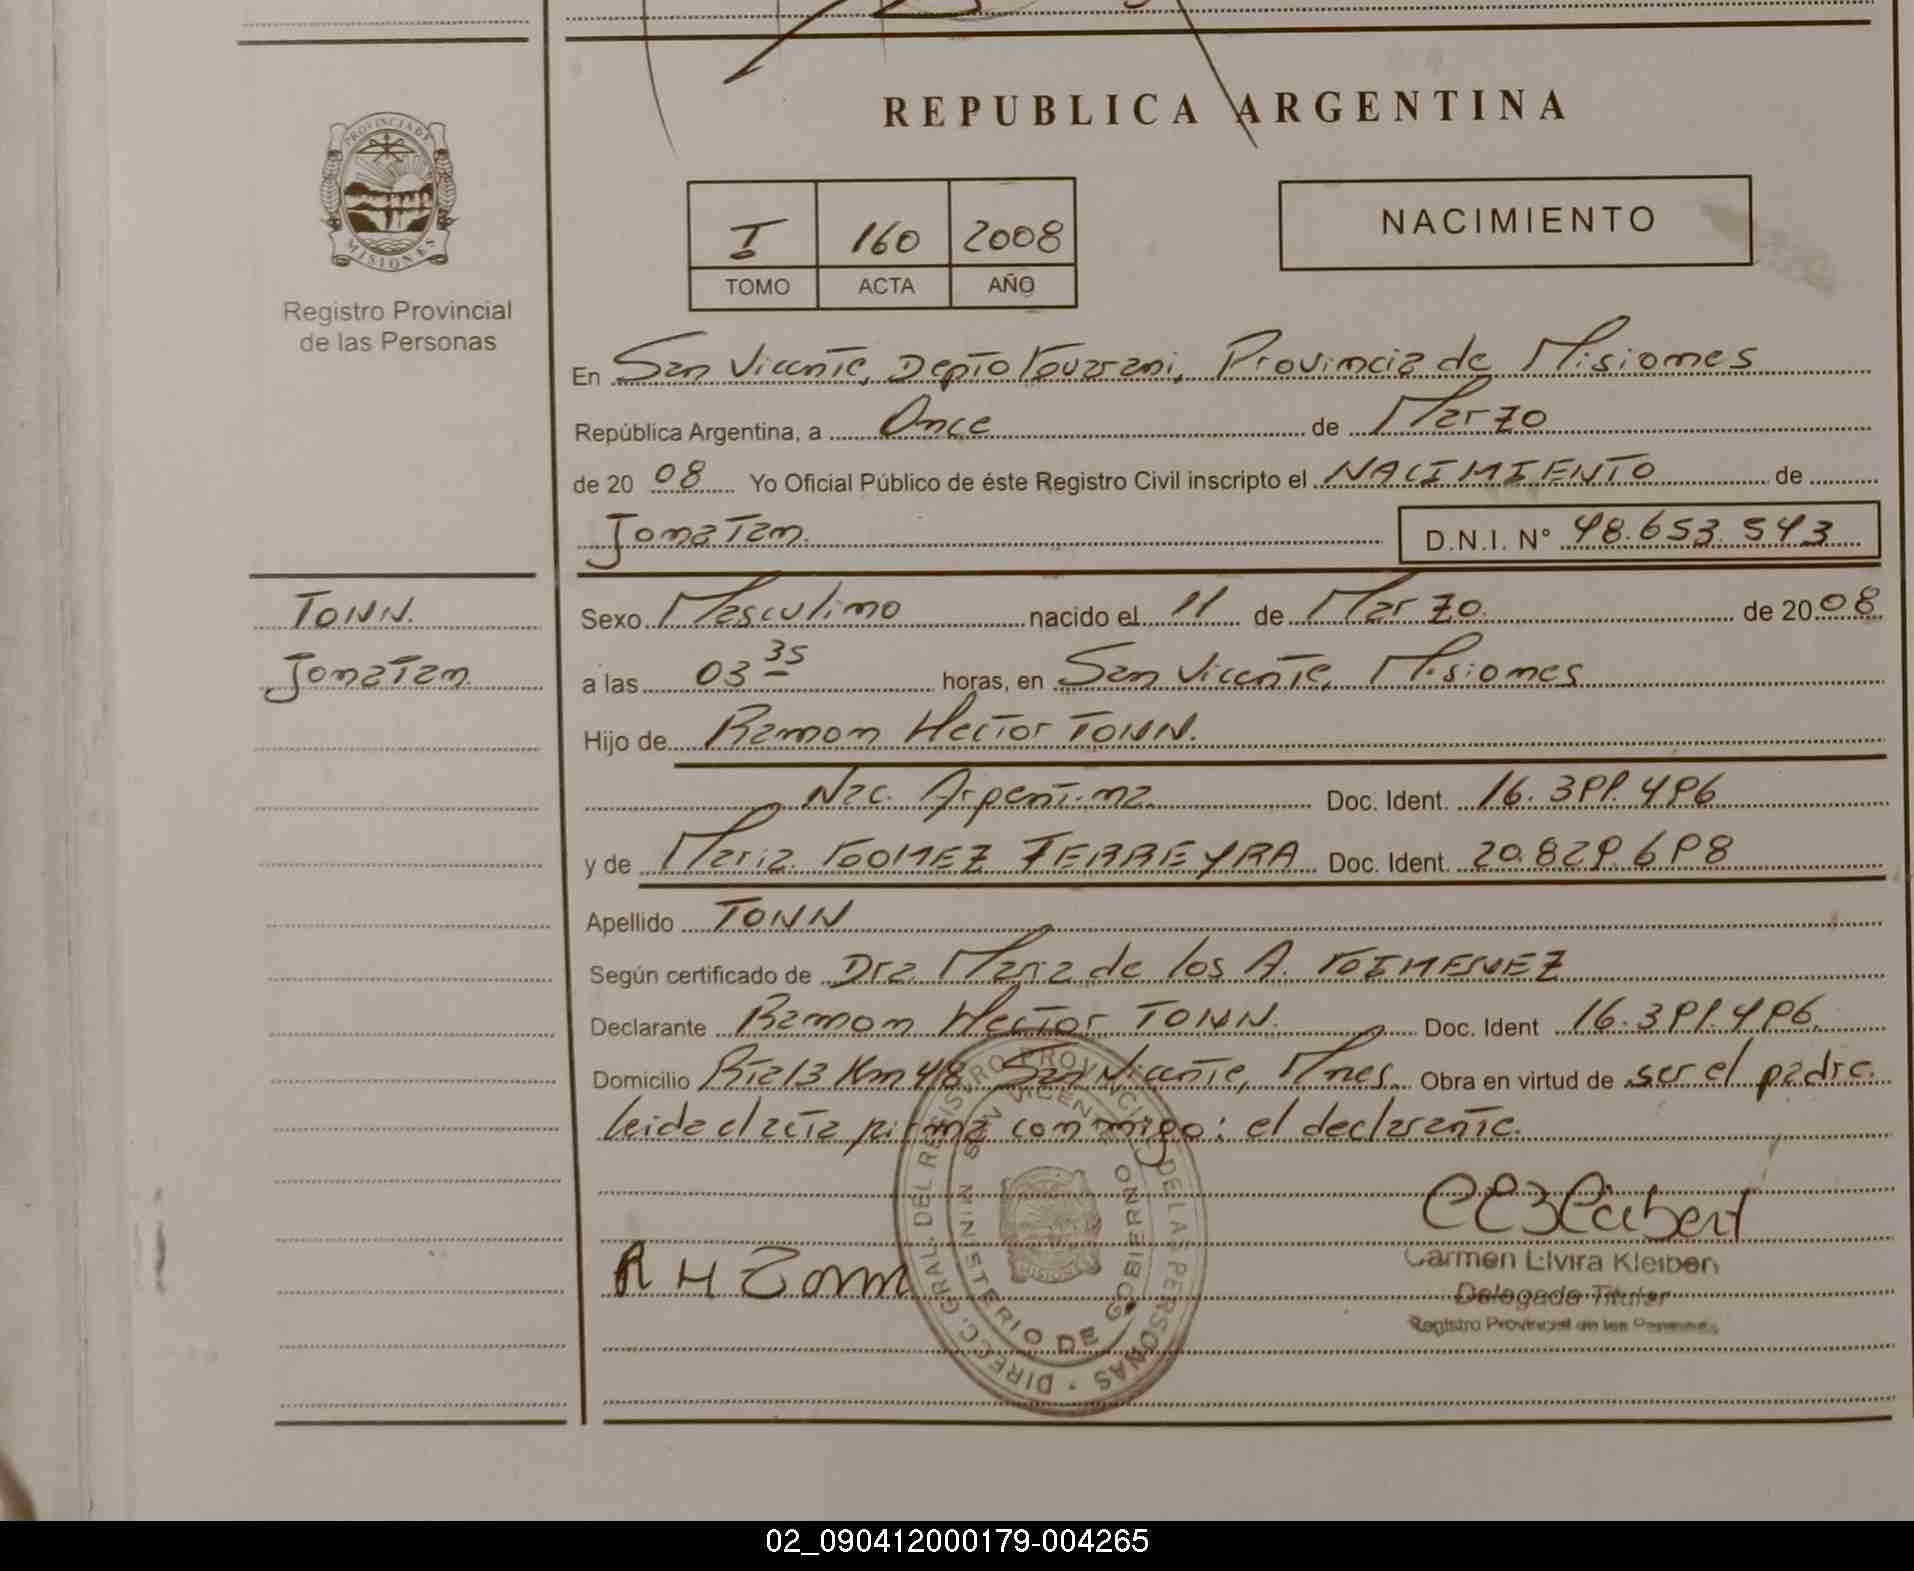 REPUBLICA ARGENTINA
PROVINCIA DE
MISIONES
Registro Provincial
de las Personas
I 160 2008
TOMO ACTA AÑO
NACIMIENTO
En San Vicente, Depto Guarani, Provincia de Misiones
República Argentina, a Once de Marzo
de 2008 Yo Oficial Público de éste Registro Civil inscripto el NACIMIENTO de
Jonatan. D.N.I. N° 48.653.543
TONN.
Jonatan
Sexo Masculino nacido el 11 de Marzo. de 2008
a las 03 35 horas, en San Vicente, Misiones
Hijo de Ramon Hector TONN.
Nac. Argentina Doc. Ident. 16.391.496
y de Maria GOMEZ FERREYRA Doc. Ident. 20.829.698
Apellido TONN
Según certificado de Dra. Maria de los A. GIMENEZ
Declarante Ramon Hector TONN. Doc. Ident 16.391.496
Domicilio Rta 13 Km 48 San Vicente, Mnes. Obra en virtud de ser el padre.
leida el acta firma conmigo: el declarante.
DIRECC. GRAL. DEL REGISTRO PROVINCIAL DE LAS PERSONAS
SAN VICENTE
MINISTERIO DE GOBIERNO
MISIONES
R H Tonn
Carmen Elvira Kleiben
Delegada Titular
Registro Provincial de las Personas
02_090412000179-004265